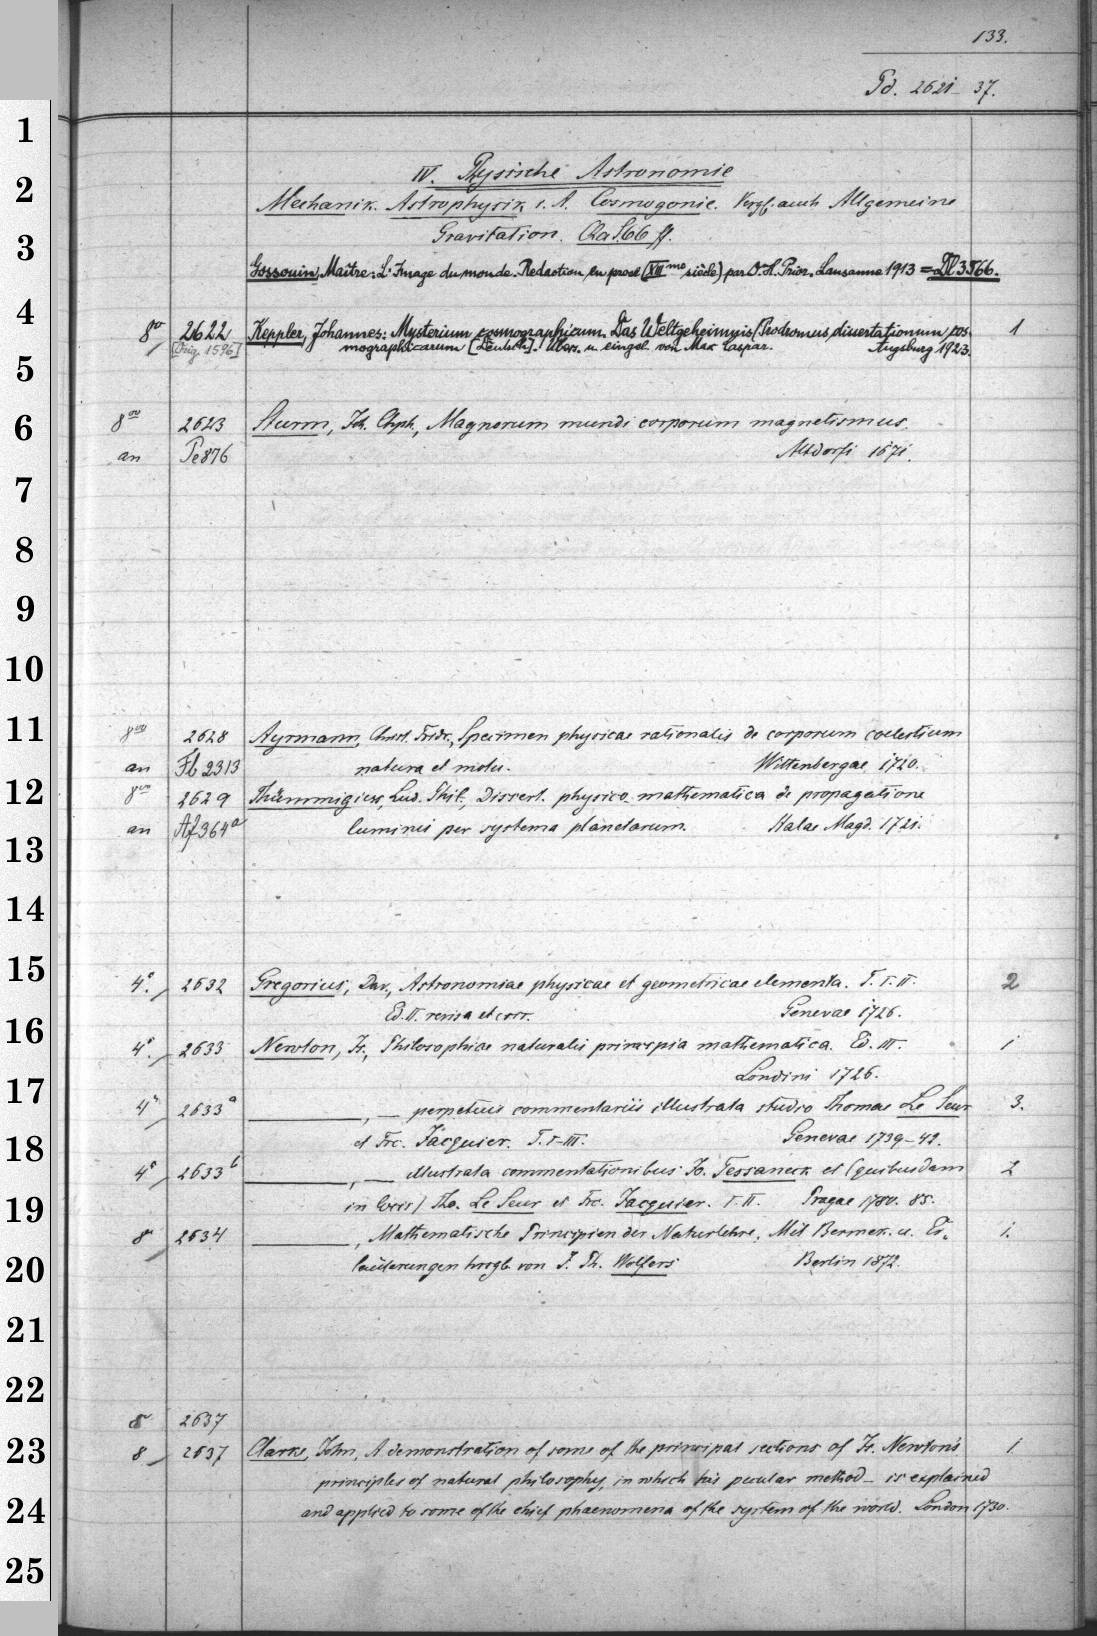 133.
Pd. 2621–37.
1
IV. Physische Astronomie
2
Mechanik. Astrophysik, s. A. Cosmogonie. Vergl. auch Allgemeine
3
Gravitation. Qa S. 66 ff.
Gossouin, Maître: L'Image du monde. Redaction en prose (XIIIme siècle) par O. H. Prior. Lausanne 1913 = Dl 3566.
4
8vo 2622 Keppler, Johannes: Mysterium cosmographicum. Das Weltgeheimnis (Prodromus dissertationum cos- 1
[Orig. 1596] mographicarum [Deutsch]. Übers. u. eingel. von Max Caspar. Augsburg 1923.
5
6
8vo 2623 Sturm, Joh. Chph., Magnorum mundi corporum magnetismus.
an Pe 876 Altdorfi 1671.
7
8
9
10
11
8vo 2628 Ayrmann, Christ. Fridr., Specimen physicae rationalis de corporum coelestium
an Fb 2313 natura et motu. Wittenbergae 1720.
12
8vo 2629 Thümmigius, Lud. Phil., Dissert. physico mathematica de propagatione
an Af 364a luminis per systema planetarum. Halae Magd. 1721.
13
14
15
4° 2632 Gregorius, Dav., Astronomiae physicae et geometricae elementa. T. I. II. 2
Ed. II. revisa et corr. Genevae 1726.
16
4° 2633 Newton, Is., Philosophiae naturalis principia mathematica. Ed. III. 1
Londini 1726.
17
4° 2633a ———, — perpetuis commentariis illustrata studio Thomae Le Seur 3.
et Frc. Jacquier. T. I–III. Genevae 1739–42.
18
4° 2633b ———, — illustrata commentationibus Jo. Tessaneck et (quibusdam 2
in locis) Tho. Le Seur et Frc. Jacquier. I. II. Pragae 1780. 85.
19
8° 2634 ———, Mathematische Principien der Naturlehre. Mit Bemerk. u. Er- 1.
läuterungen hrsgb. von J. Ph. Wolfers Berlin 1872.
20
21
22
8° 2637
23
8 2637 Clarke, John, A demonstration of some of the principal sections of Is. Newton's 1
principles of natural philosophy, in which his peculiar method – is explained
24
and applied to some of the chief phaenomena of the system of the world. London 1730.
25